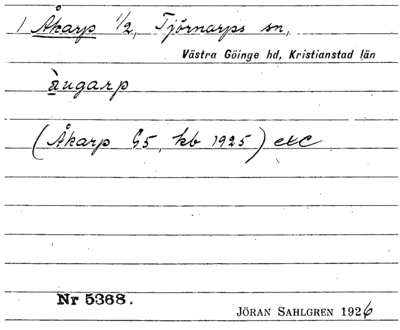 1 Åkarp 1/2, Tjörnarps sn,
Västra Göinge hd, Kristianstad län
àugarp
(Åkarp G5, kb 1925) etc
Nr 5368.
JÖRAN SAHLGREN 1926